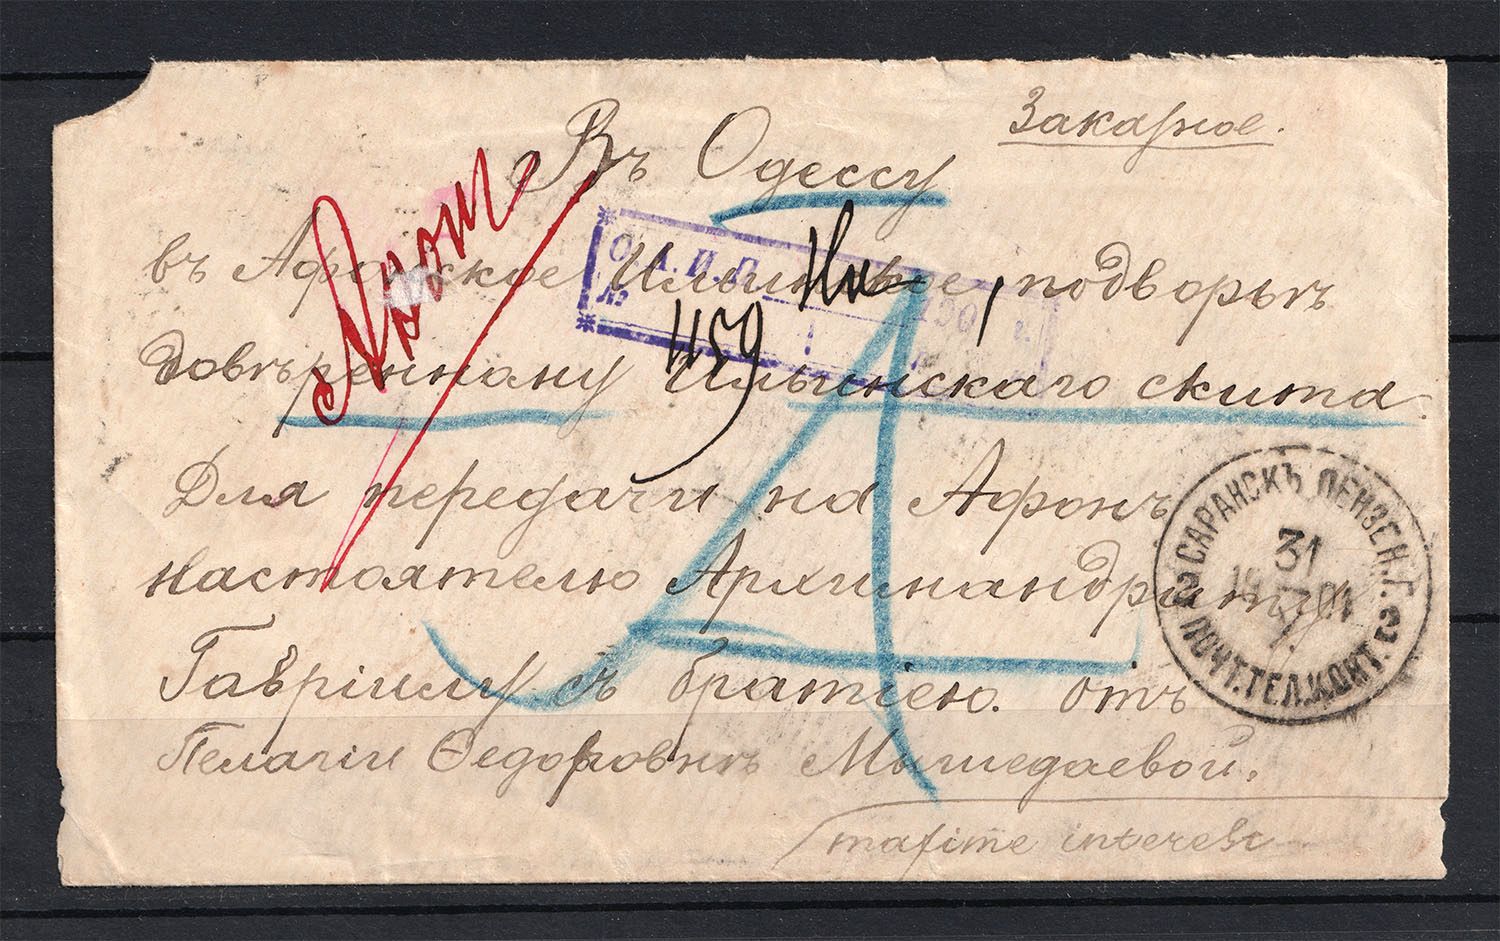 Заказное.
Въ Одессу
въ Афонское Ильинское, подворье
довѣренному Ильинскаго скита
Для передачи на Афонъ
настоятелю Архимандриту
Гавріилу съ братіею. отъ
Пелагіи Ѳедоровнъ
О. А. И. П.
№
190 г.
1159
САРАНСКЪ ПЕНЗЕН. Г.
31
7
1904
2 ПОЧТ. ТЕЛ. КОНТ. 2